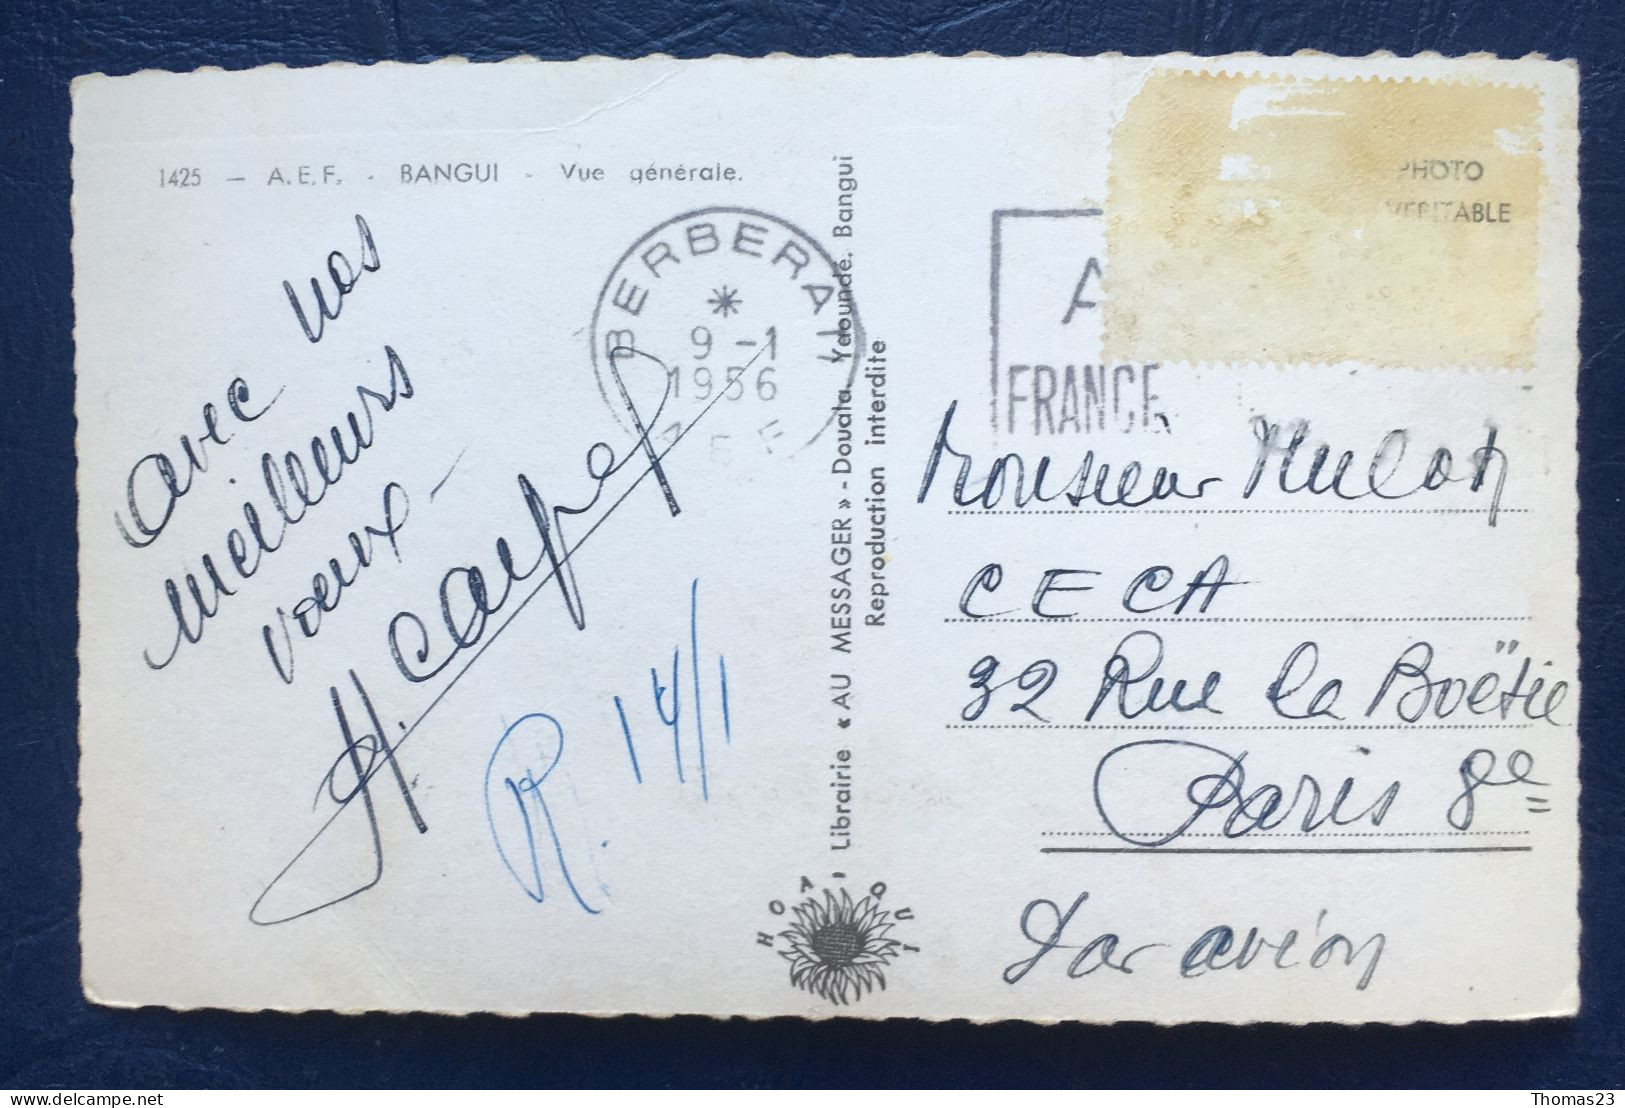 1425 — A.E.F. - BANGUI - Vue générale.
avec nos
meilleurs
voeux -
R. 14/1
BERBERATI
9 -1
1956
A E F
Librairie « AU MESSAGER » - Douala. Yaoundé. Bangui
Reproduction interdite
HOA-QUI
PHOTO
VERITABLE
A
FRANCE
Monsieur Hulot
CECA
32 Rue la Boëtie
Paris 8e
Par avion
delcampe.net
Thomas23